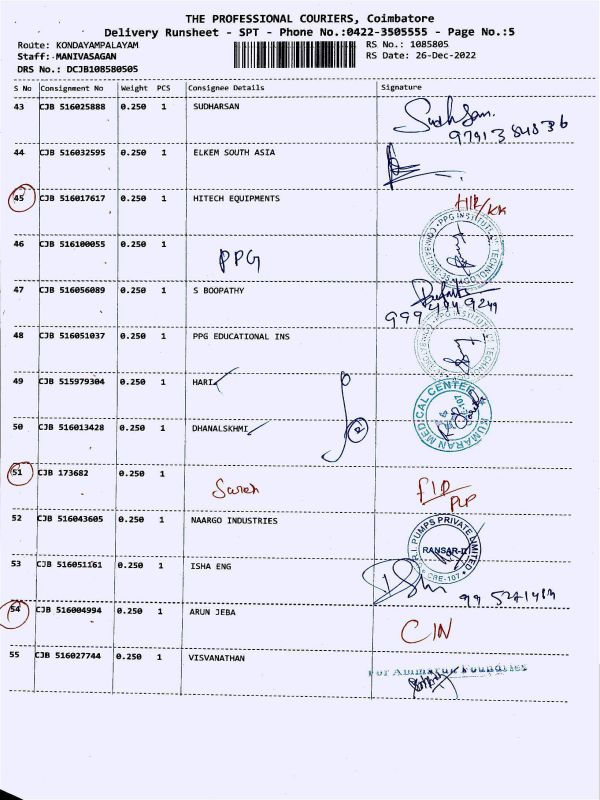 THE PROFESSIONAL COURIERS, Coimbatore
Delivery Runsheet - SPT - Phone No.:0422-3505555 - Page No.:5
Route: KONDAYAMPALAYAM
RS No.: 1085805
Staff: MANIVASAGAN
RS Date: 26-Dec-2022
DRS No.: DCJB108580505
S No Consignment No Weight PCS Consignee Details Signature
43 CJB 516025888 0.250 1 SUDHARSAN
44 CJB 516032595 0.250 1 ELKEM SOUTH ASIA
45 CJB 516017617 0.250 1 HITECH EQUIPMENTS
46 CJB 516100055 0.250 1 PPG
PPG INSTITUTE OF TECHNOLOGY
47 CJB 516056089 0.250 1 S BOOPATHY
999 494 9249
48 CJB 516051037 0.250 1 PPG EDUCATIONAL INS
49 CJB 515979304 0.250 1 HARI
KUMARAN MEDICAL CENTER
50 CJB 516013428 0.250 1 DHANALSKHMI
51 CJB 173682 0.250 1
52 CJB 516043605 0.250 1 NAARGO INDUSTRIES
R.I. PUMPS PRIVATE LIMITED
RANSAR-II
CBE-107
53 CJB 516051161 0.250 1 ISHA ENG
54 CJB 516004994 0.250 1 ARUN JEBA CIN
55 CJB 516027744 0.250 1 VISVANATHAN